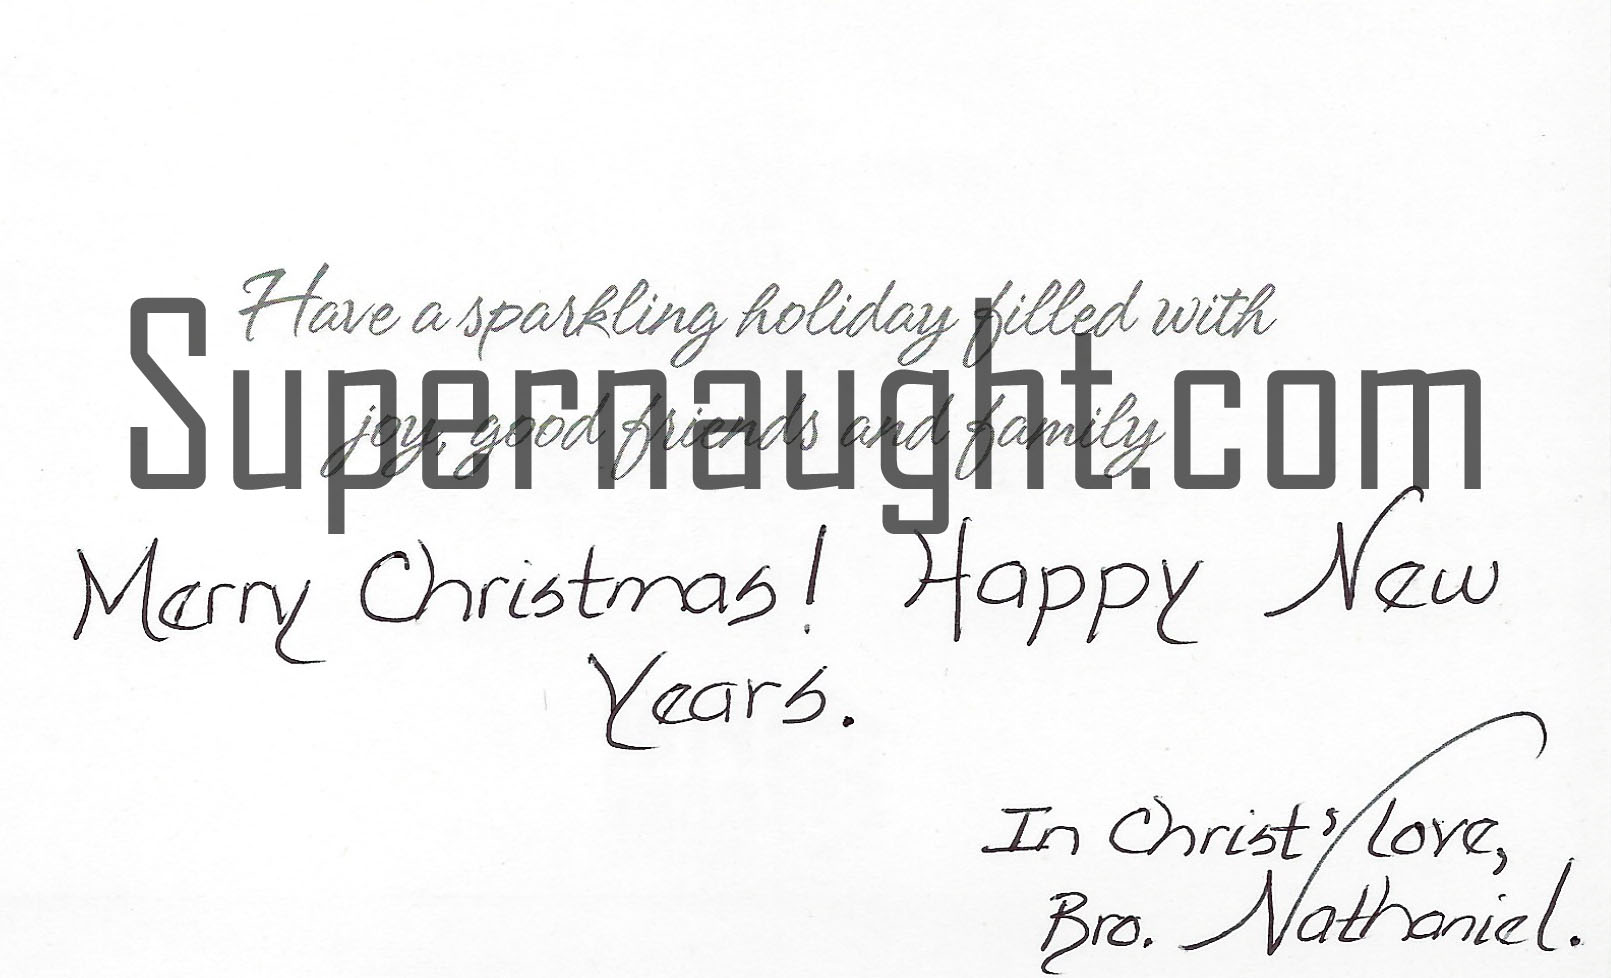 Have a sparkling holiday filled with
Supernaught.com
joy, good friends and family
Merry Christmas! Happy New
Years.
In Christ's love,
Bro. Nathaniel.